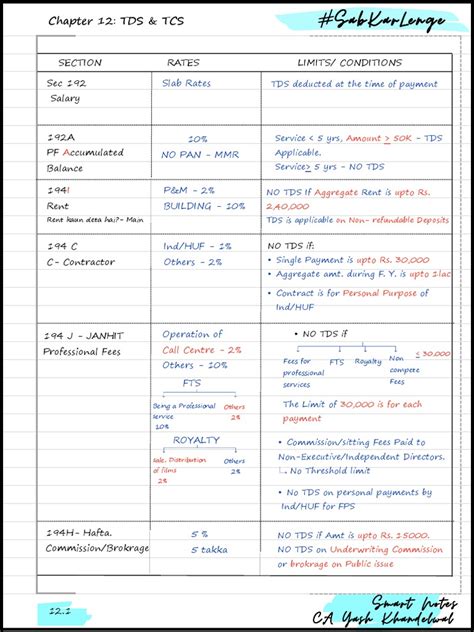 Chapter 12: TDS & TCS
#SabKarLenge
SECTION RATES LIMITS/ CONDITIONS
Sec 192
Salary
Slab Rates
TDS deducted at the time of payment
192A
PF Accumulated
Balance
10%
NO PAN - MMR
Service < 5 yrs, Amount ≥ 50K - TDS
Applicable.
Service> 5 yrs - NO TDS
194I
Rent
Rent kaun deta hai?- Main
P&M - 2%
BUILDING - 10%
NO TDS If Aggregate Rent is upto Rs.
2,40,000
TDS is applicable on Non- refundable Deposits
194 C
C- Contractor
Ind/HUF - 1%
Others - 2%
NO TDS if:
• Single Payment is upto Rs. 30,000
• Aggregate amt. during F. Y. is upto 1lac
• Contract is for Personal Purpose of
Ind/HUF
194 J - JANHIT
Professional Fees
Operation of
Call Centre - 2%
Others - 10%
FTS
Being a Professional
service
10%
Others
2%
ROYALTY
sale. Distribution
of films
2%
Others
2%
• NO TDS if
Fees for
professional
services
FTS
Royalty
Non
compete
Fees
≤ 30,000
The Limit of 30,000 is for each
payment
• Commission/sitting Fees Paid to
Non-Executive/Independent Directors.
- No Threshold limit
• NO TDS on personal payments by
Ind/HUF for FPS
194H- Hafta.
Commission/Brokrage
5 %
5 takka
NO TDS if Amt is upto Rs. 15000.
NO TDS on Underwriting Commission
or brokrage on Public issue
12.1
Smart Notes
CA Yash Khandelwal